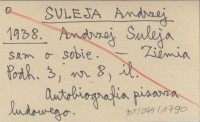 SULEJA Andrzej
1938. Andrzej Suleja
sam o sobie. – Ziemia
Podh. 3, nr 8, il.
Autobiografia pisarza
ludowego.